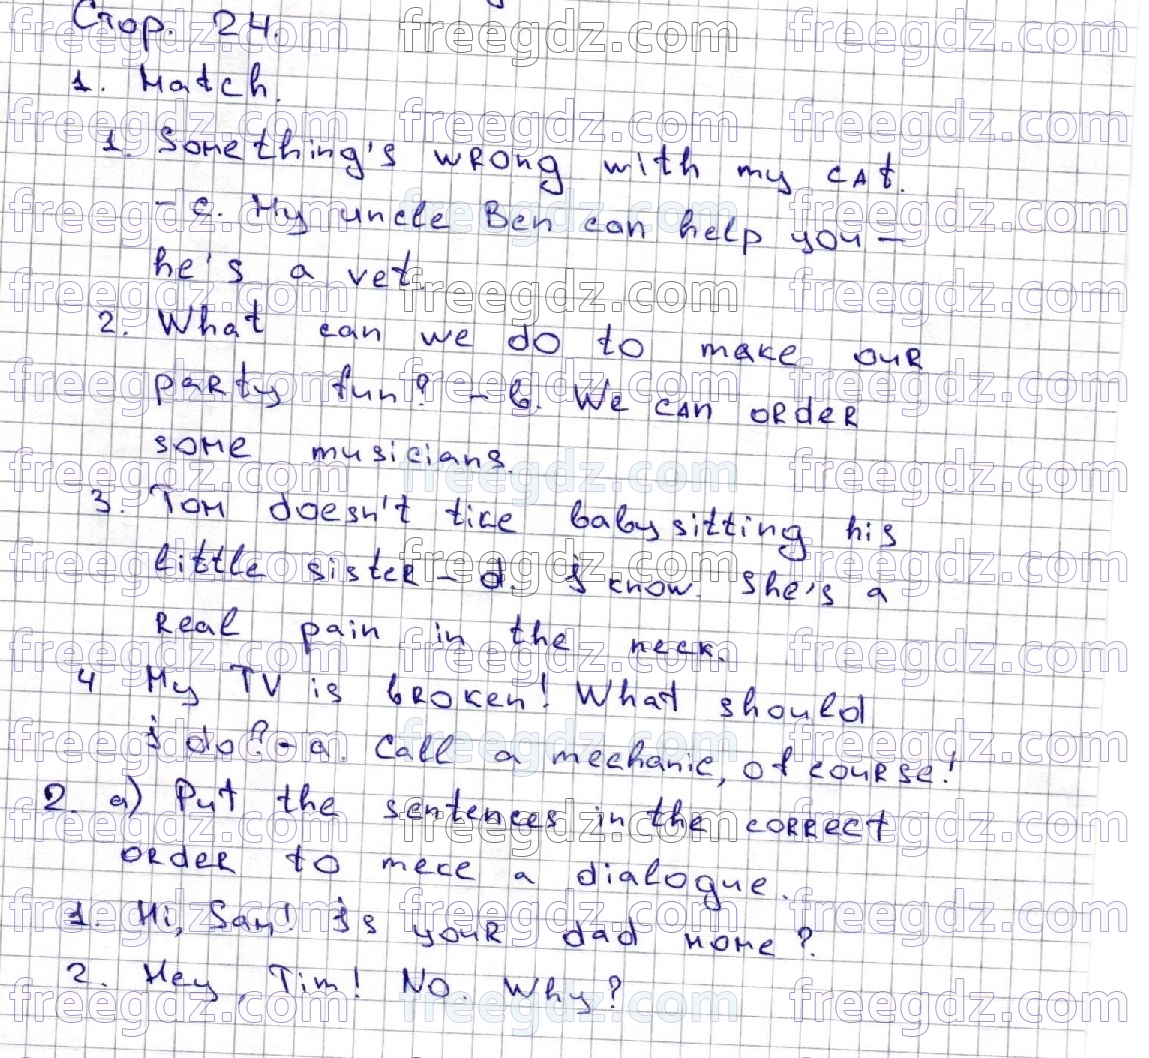 Стор. 24.
1. Match.
1. Something's wrong with my cat.
- c. My uncle Ben can help you -
he's a vet.
2. What can we do to make our
party fun? - b. We can order
some musicians.
3. Tom doesn't like babysitting his
little sister - d. I know. She's a
real pain in the neck.
4 My TV is broken! What should
I do? - a. Call a mechanic, of course!
2. a) Put the sentences in the correct
order to mece a dialogue.
1. Hi, Sam! Is your dad home?
2. Hey, Tim! No. Why?